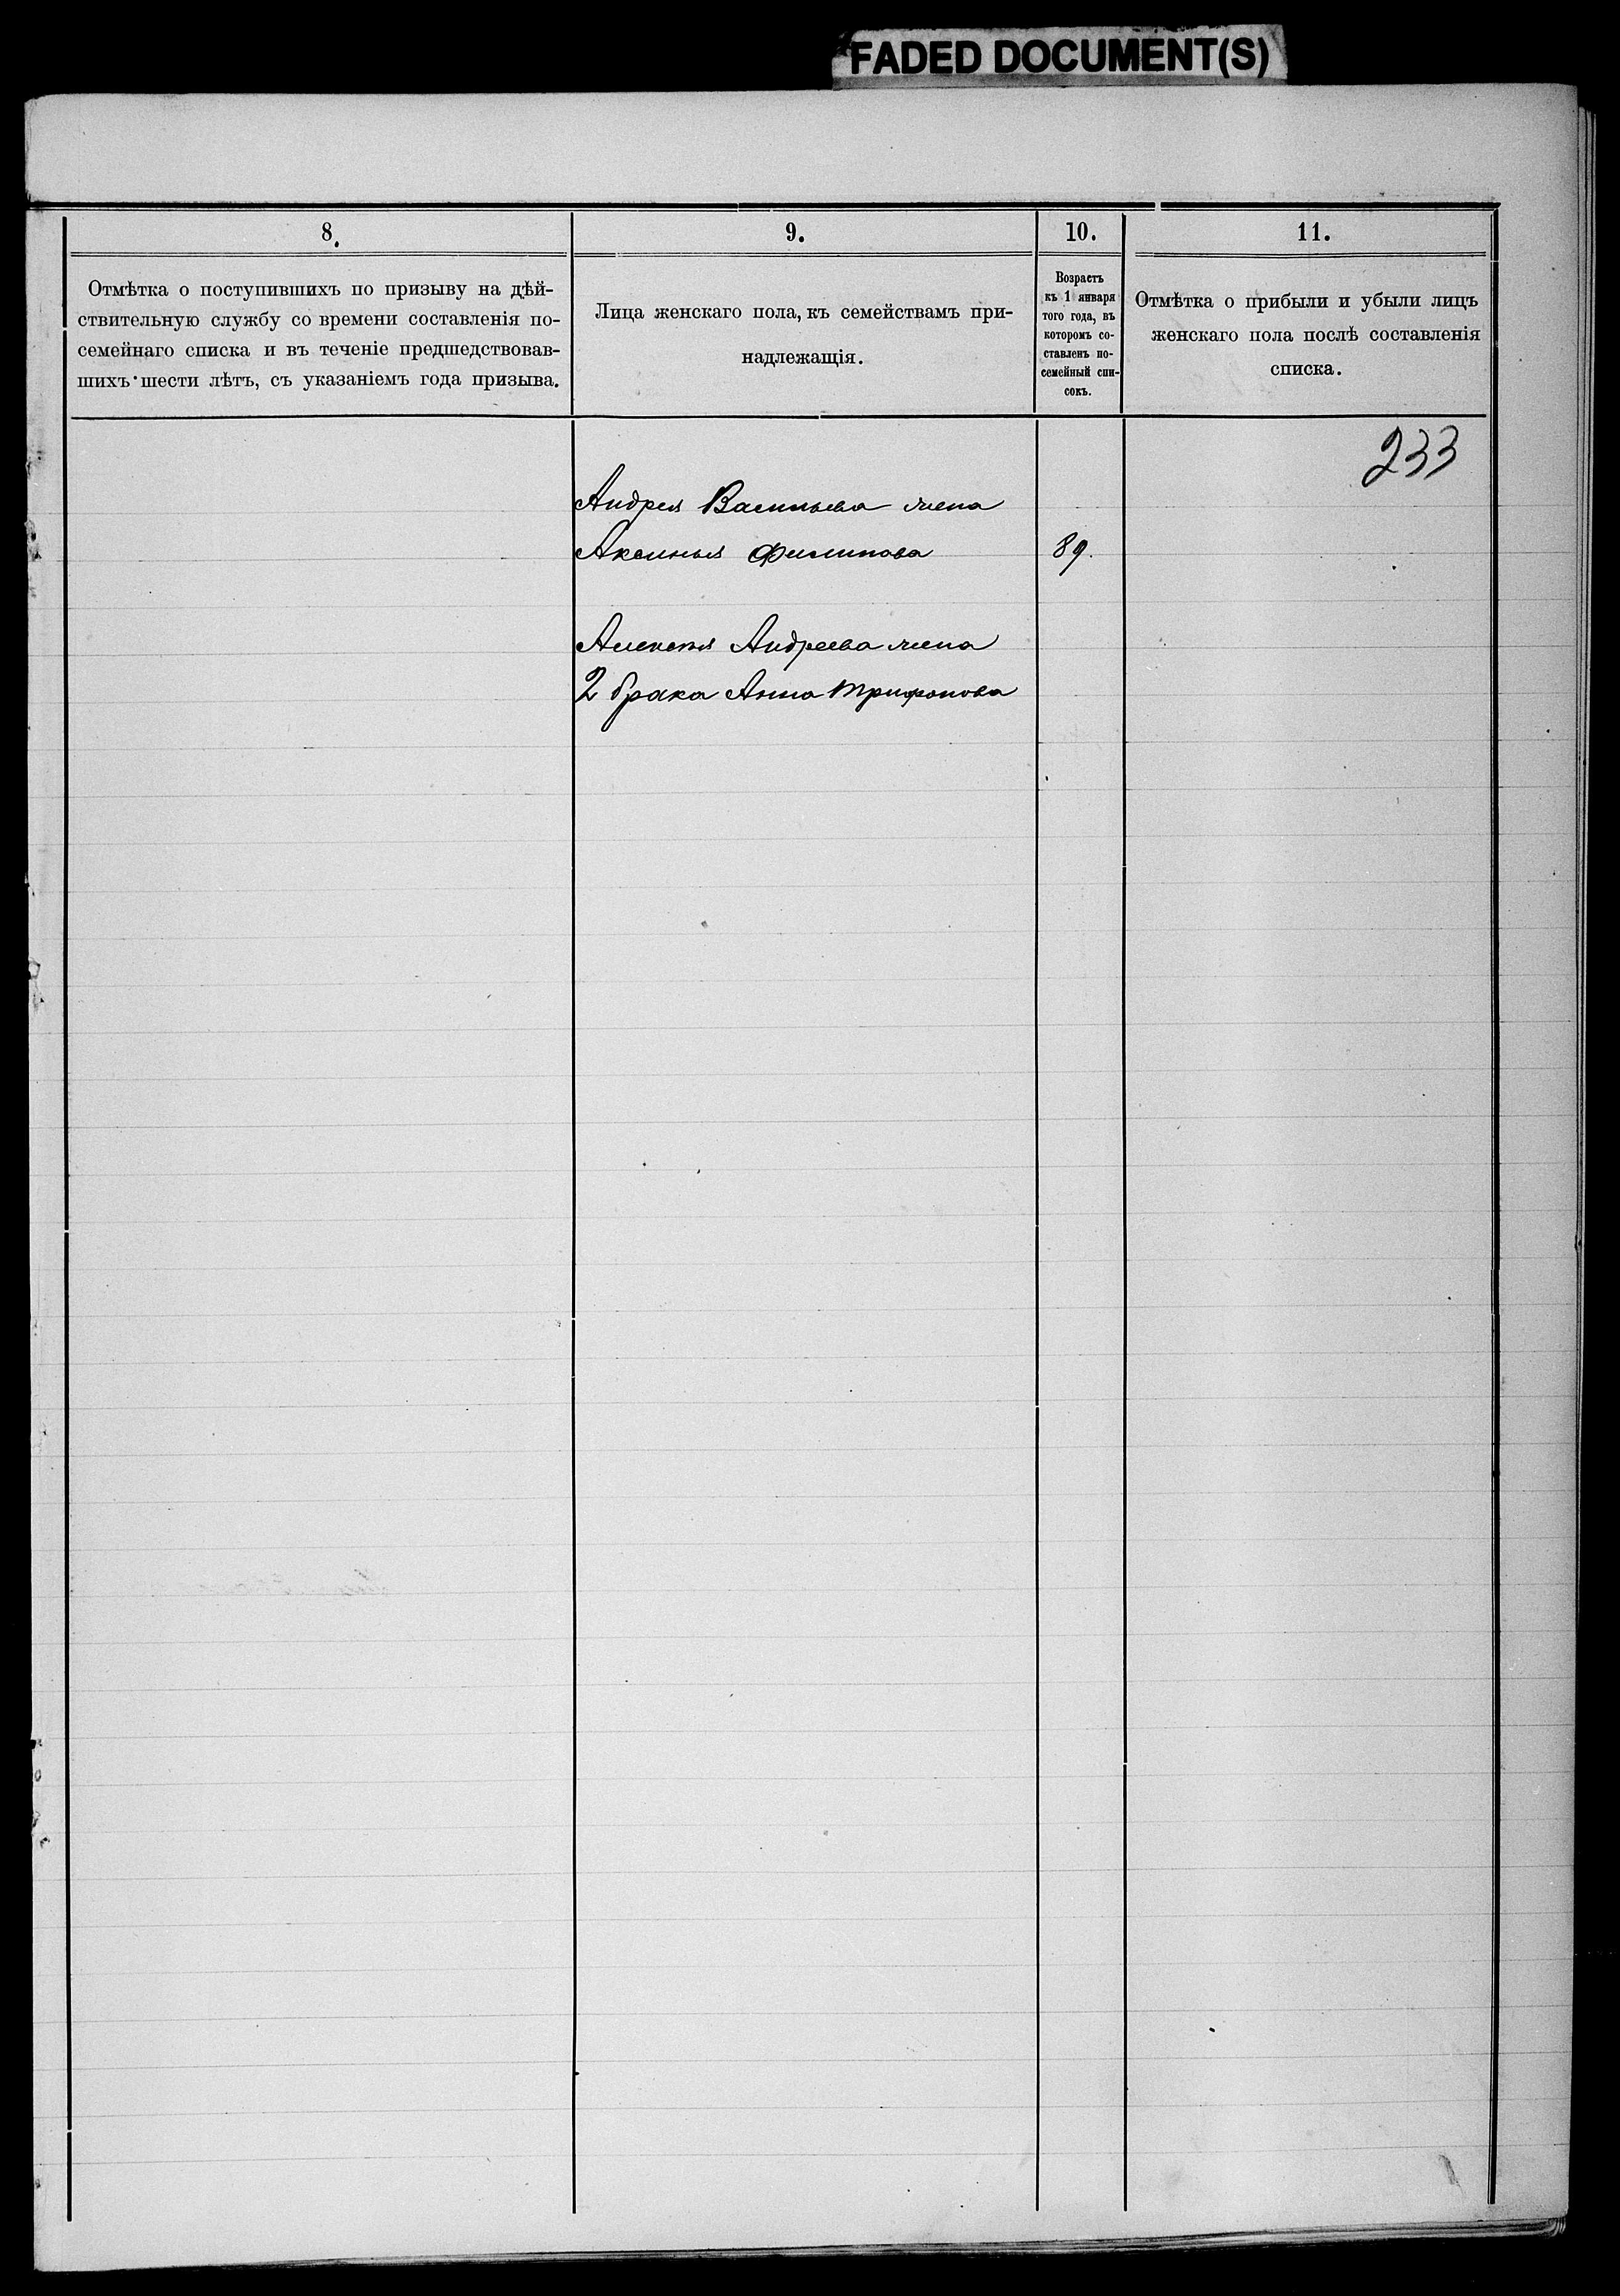 FADED DOCUMENT(S)
8.
Отмѣтка о поступившихъ по призыву на дѣй-
ствительную службу со времени составленія по-
семейнаго списка и въ теченіе предшедствовав-
шихъ шести лѣтъ, съ указаніемъ года призыва.
9.
Лица женскаго пола, къ семействамъ при-
надлежащія.
10.
Возрастъ
къ 1 января
того года, въ
которомъ со-
ставленъ по-
семейный спи-
сокъ.
11.
Отмѣтка о прибыли и убыли лицъ
женскаго пола послѣ составленія
списка.
233
Андрея Васильева жена
Аксинья Филипова 89.
Алексея Андреева жена
2 брака Анна Трифонова